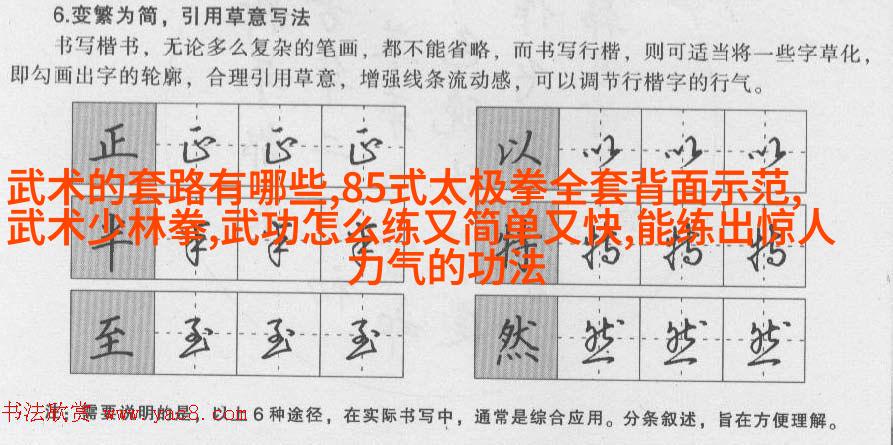 6.变繁为简，引用草意写法
书写楷书，无论多么复杂的笔画，都不能省略，而书写行楷，则可适当将一些字草化，
即勾画出字的轮廓，合理引用草意，增强线条流动感，可以调节行楷字的行气。
正 正 正 正 以 以 以 以
武术的套路有哪些,85式太极拳全套背面示范,
武术少林拳,武功怎么练又简单又快,能练出惊人
力气的功法
半 特 特 特
至 至 至 至 然 然 然 然
注：需要说明的是，以上6种途径，在实际书写中，通常是综合应用。分条叙述，旨在方便理解。
书法欣赏 www.yac8.com